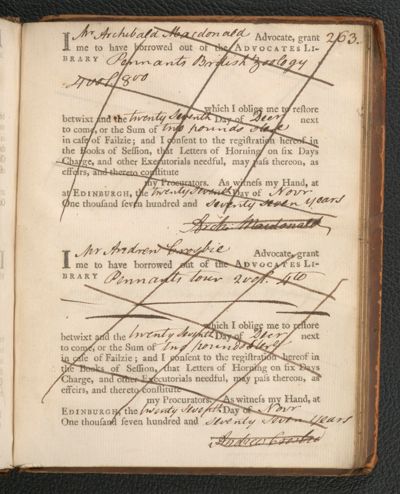 263.
I Mr Archibald Macdonald Advocate, grant
me to have borrowed out of the ADVOCATES LI-
BRARY Pennants British Zoology
4 vol. 8vo
which I oblige me to reſtore
betwixt and the twenty Seventh Day of Decr next
to come, or the Sum of two pounds
in caſe of Failzie; and I conſent to the regiſtration hereof in
the Books of Seſſion, that Letters of Horning on ſix Days
Charge, and other Executorials needful, may paſs thereon, as
effeirs, and thereto conſtitute
my Procurators. As witneſs my Hand, at
at EDINBURGH, the twenty Seventh Day of Novr
One thouſand ſeven hundred and seventy seven years
Archd Macdonald
I Mr Andrew Crosbie Advocate, grant
me to have borrowed out of the ADVOCATES LI-
BRARY Pennants tour 2 vol. 4to
which I oblige me to reſtore
betwixt and the twenty Seventh Day of Decr next
to come, or the Sum of two pounds
in caſe of Failzie; and I conſent to the regiſtration hereof in
the Books of Seſſion, that Letters of Horning on ſix Days
Charge, and other Executorials needful, may paſs thereon, as
effeirs, and thereto conſtitute
my Procurators. As witneſs my Hand, at
EDINBURGH, the twenty Seventh Day of Novr
One thouſand ſeven hundred and Seventy Seven years
Andrew Crosbie